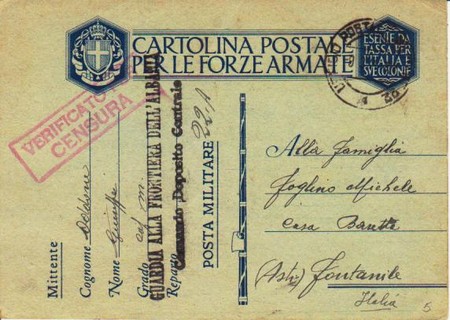 CARTOLINA POSTALE
PER LE FORZE ARMATE
ESENTE DA
TASSA PER
L'ITALIA E
SUE COLONIE
VERIFICATO
CENSURA
Mittente
Cognome
Nome Giuseppe
Grado
Reparto
GUARDIA ALLA FRONTIERA DELL'ALBANIA
Comando Deposito Centrale
POSTA MILITARE 22 A
22
Alla famiglia
Foglino Michele
Casa
(Asti) Fontanile
Italia
5